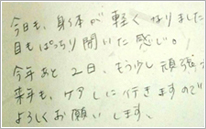 今日も、身体が軽くなりました
目もぱっちり開いた感じ。
今年あと2日、もう少し頑張って
来年も、ケアしに行きますので
よろしくお願いします。